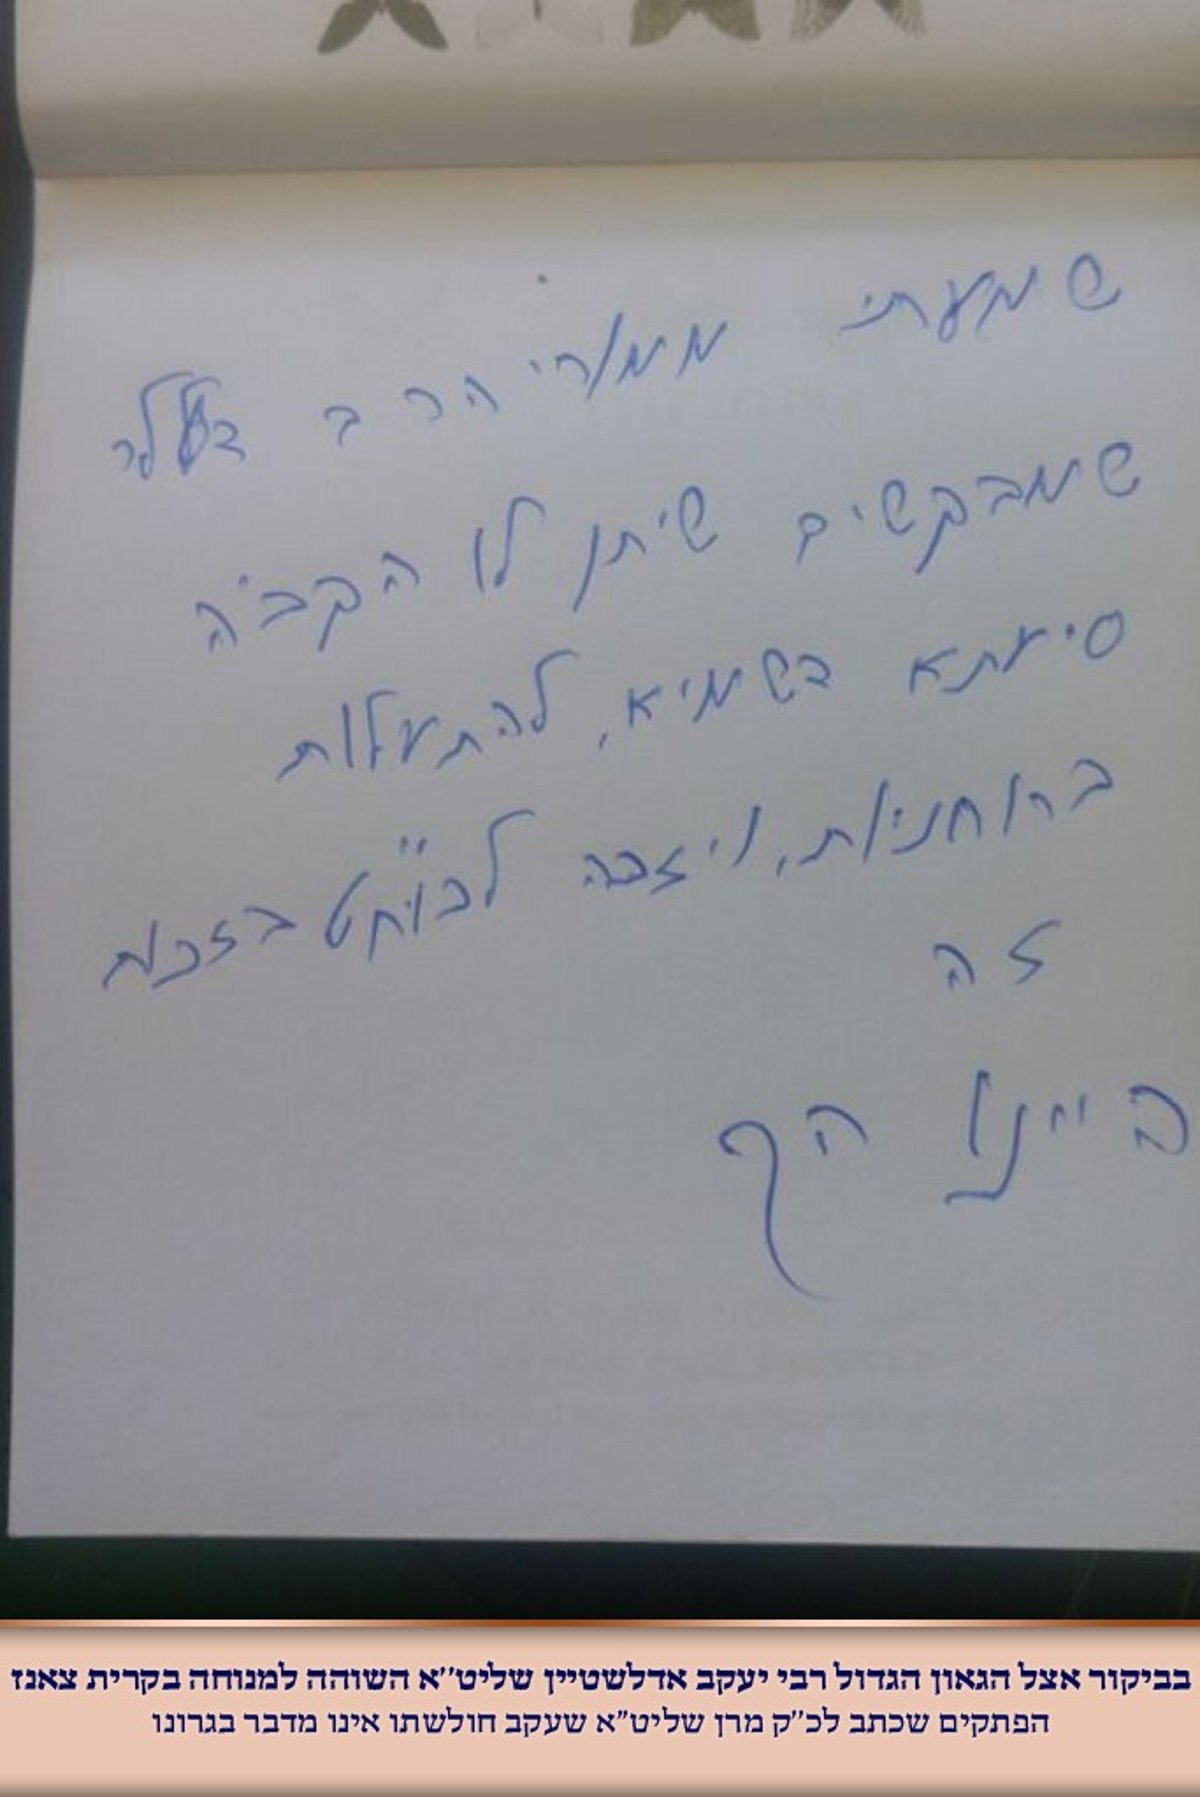 שמעתי ממורי הרב דסלר
שמבקשים שיתן לו הקב"ה
סיעתא דשמיא, להתעלות
ברוחניות, ויזכה לכוח"ט בזכות
זה
היינו הך
בביקור אצל הגאון הגדול רבי יעקב אדלשטיין שליט''א השוהה למנוחה בקרית צאנז
הפתקים שכתב לכ''ק מרן שליט"א שעקב חולשתו אינו מדבר בגרונו